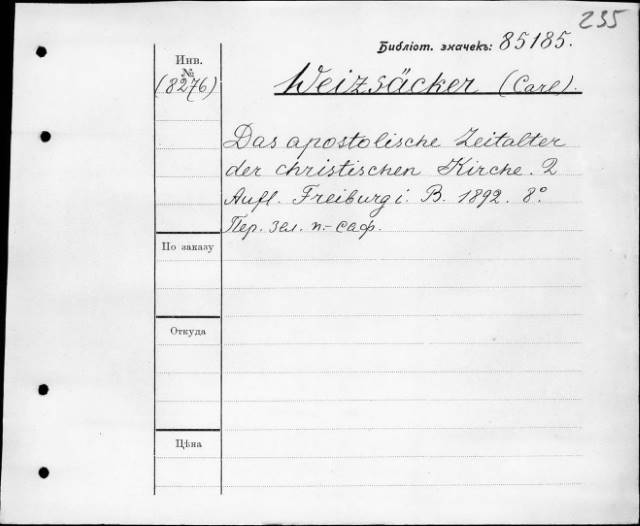 235
Библіот. значекъ: 85185.
Инв.
№
(8276)
Weizsäcker (Carl).
Das apostolische Zeitalter
der christischen Kirche. 2
Aufl. Freiburg i. B. 1892. 8°.
Пер. зел. п.-саф.
По заказу
Откуда
Цѣна